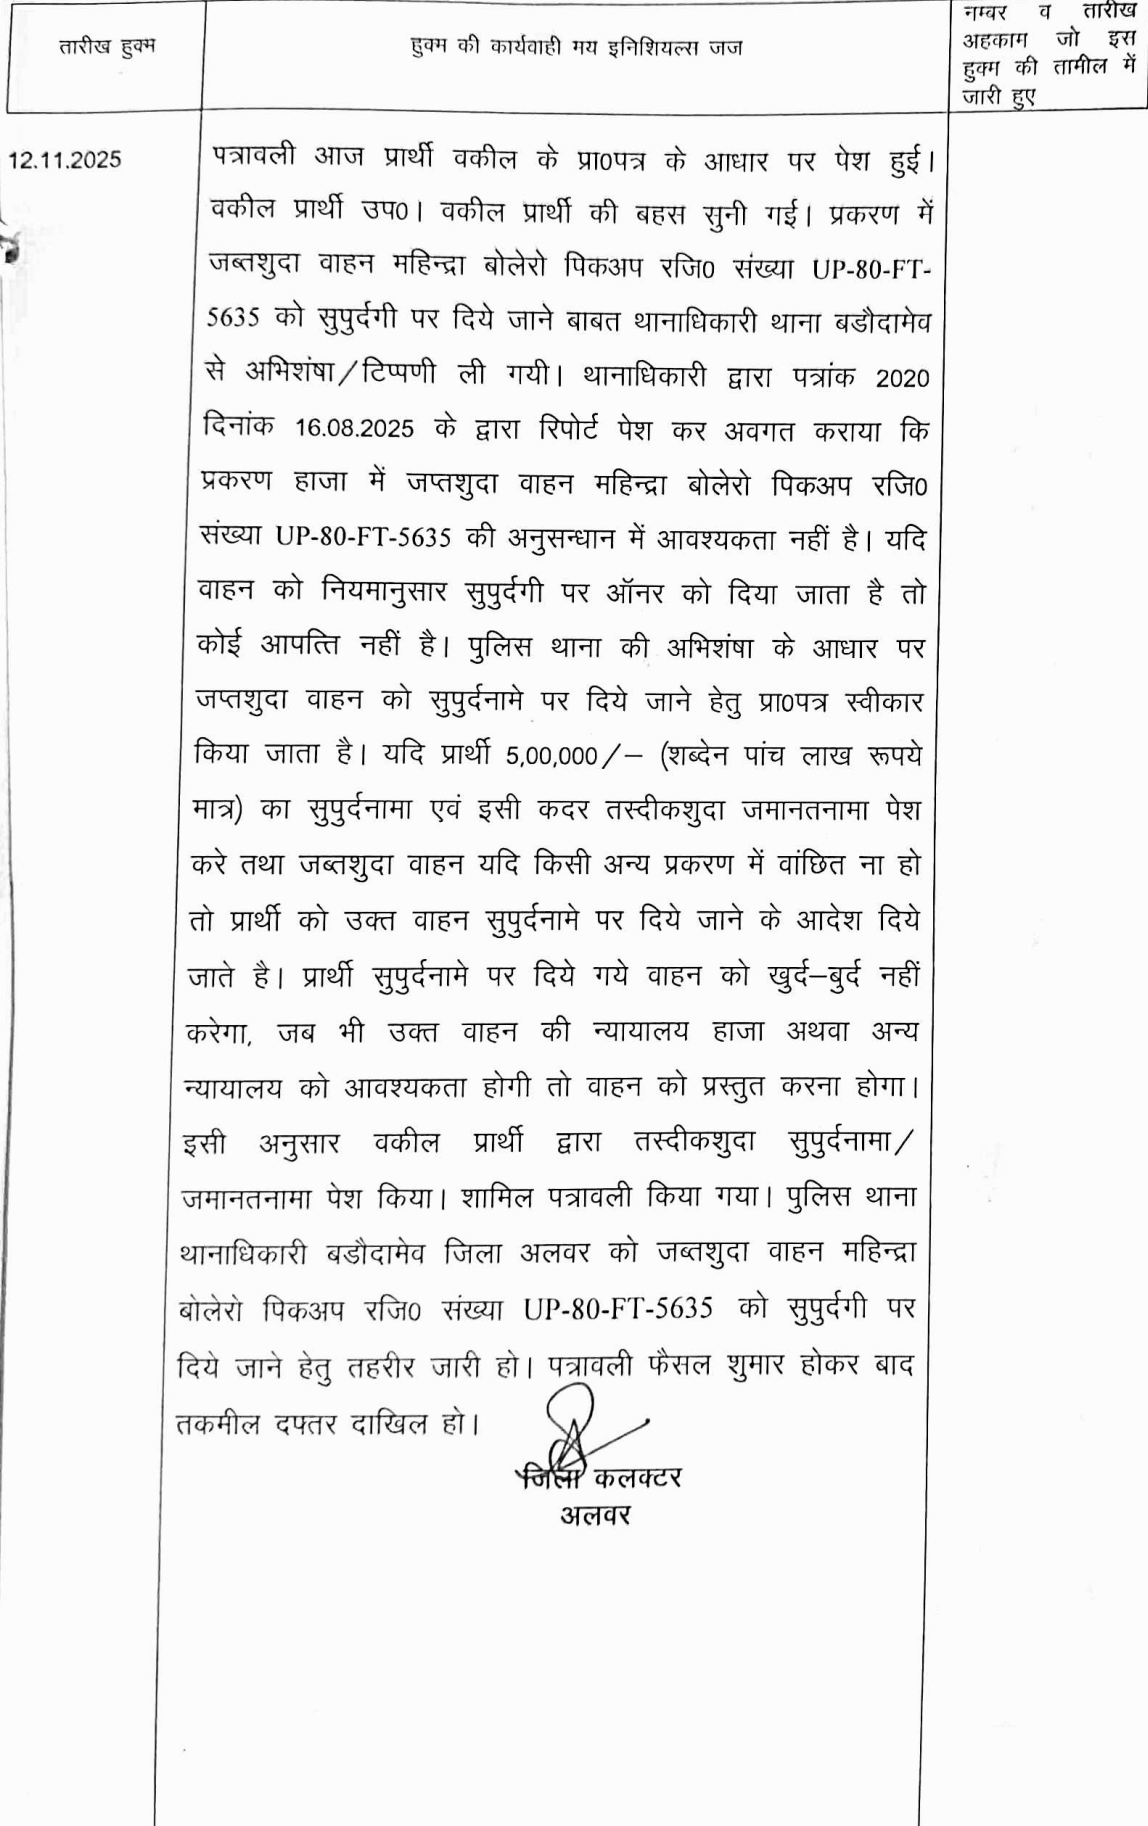 तारीख हुक्म
हुक्म की कार्यवाही मय इनिशियल्स जज
नम्बर व तारीख
अहकाम जो इस
हुक्म की तामील में
जारी हुए
12.11.2025
पत्रावली आज प्रार्थी वकील के प्रा0पत्र के आधार पर पेश हुई।
वकील प्रार्थी उप0। वकील प्रार्थी की बहस सुनी गई। प्रकरण में
जब्तशुदा वाहन महिन्द्रा बोलेरो पिकअप रजि0 संख्या UP-80-FT-
5635 को सुपुर्दगी पर दिये जाने बाबत थानाधिकारी थाना बडौदामेव
से अभिशंषा/टिप्पणी ली गयी। थानाधिकारी द्वारा पत्रांक 2020
दिनांक 16.08.2025 के द्वारा रिपोर्ट पेश कर अवगत कराया कि
प्रकरण हाजा में जप्तशुदा वाहन महिन्द्रा बोलेरो पिकअप रजि0
संख्या UP-80-FT-5635 की अनुसन्धान में आवश्यकता नहीं है। यदि
वाहन को नियमानुसार सुपुर्दगी पर ऑनर को दिया जाता है तो
कोई आपत्ति नहीं है। पुलिस थाना की अभिशंषा के आधार पर
जप्तशुदा वाहन को सुपुर्दनामे पर दिये जाने हेतु प्रा0पत्र स्वीकार
किया जाता है। यदि प्रार्थी 5,00,000/– (शब्देन पांच लाख रूपये
मात्र) का सुपुर्दनामा एवं इसी कदर तस्दीकशुदा जमानतनामा पेश
करे तथा जब्तशुदा वाहन यदि किसी अन्य प्रकरण में वांछित ना हो
तो प्रार्थी को उक्त वाहन सुपुर्दनामे पर दिये जाने के आदेश दिये
जाते है। प्रार्थी सुपुर्दनामे पर दिये गये वाहन को खुर्द–बुर्द नहीं
करेगा, जब भी उक्त वाहन की न्यायालय हाजा अथवा अन्य
न्यायालय को आवश्यकता होगी तो वाहन को प्रस्तुत करना होगा।
इसी अनुसार वकील प्रार्थी द्वारा तस्दीकशुदा सुपुर्दनामा/
जमानतनामा पेश किया। शामिल पत्रावली किया गया। पुलिस थाना
थानाधिकारी बडौदामेव जिला अलवर को जब्तशुदा वाहन महिन्द्रा
बोलेरो पिकअप रजि0 संख्या UP-80-FT-5635 को सुपुर्दगी पर
दिये जाने हेतु तहरीर जारी हो। पत्रावली फैसल शुमार होकर बाद
तकमील दफ्तर दाखिल हो।
जिला कलक्टर
अलवर